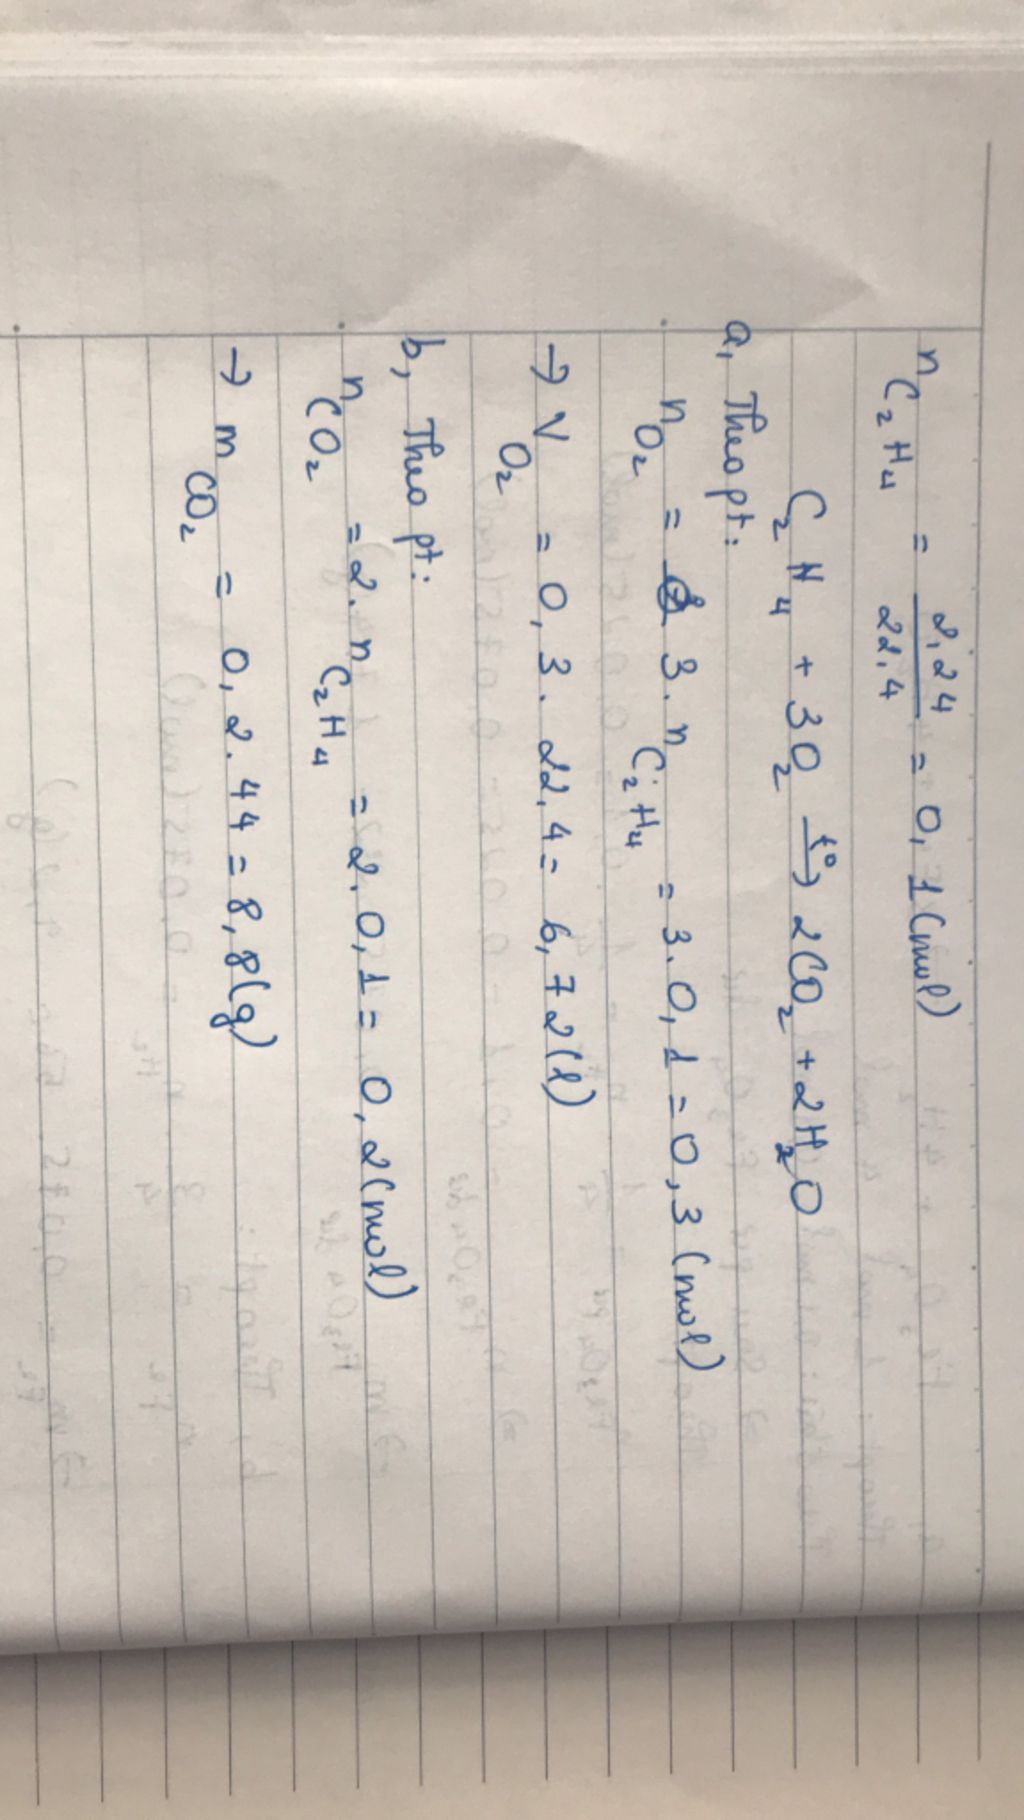 nC₂H₄ = 2,24 / 22,4 = 0,1 (mol)
C₂H₄ + 3O₂ t°→ 2CO₂ + 2H₂O
a, Theo pt:
nO₂ = 3 . nC₂H₄ = 3 . 0,1 = 0,3 (mol)
→ VO₂ = 0,3 . 22,4 = 6,72 (l)
b, Theo pt:
nCO₂ = 2 . nC₂H₄ = 2 . 0,1 = 0,2 (mol)
→ mCO₂ = 0,2 . 44 = 8,8 (g)